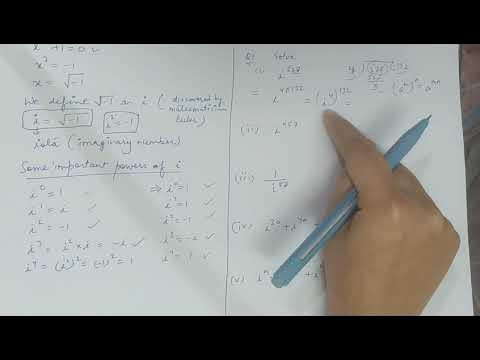 i² + 1 = 0
x² = -1
x = √-1
We define √-1 as i (discovered by mathematician Euler)
i = √-1 i² = -1
iota (imaginary number)
Some important powers of i
i⁰ = 1 ⇒ i⁰ = 1 ✓
i¹ = i ✓ i¹ = i ✓
i² = -1 ✓ i² = -1 ✓
i³ = i² × i = -i ✓ i³ = -i ✓
i⁴ = (i²)² = (-1)² = 1 i⁴ = 1 ✓
Q1 Solve
(i) i⁵²⁸ 4)528(132
= i⁴ˣ¹³² = (i⁴)¹³² = (aᵐ)ⁿ = aᵐⁿ
(ii) i
(iii) 1
i
(iv) i³⁰ + i
(v) iⁿ + i